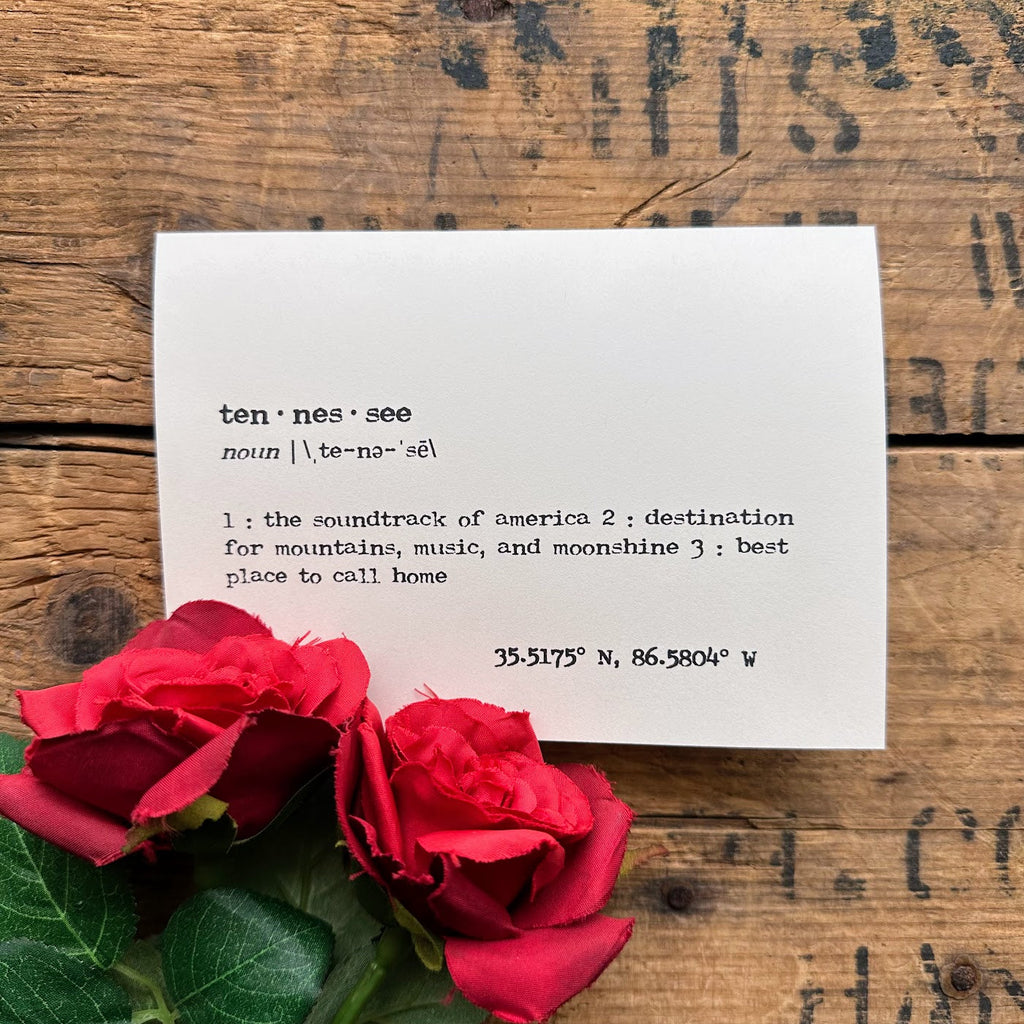 ten · nes · see
noun | \ˌte-nə-ˈsē\
1 : the soundtrack of america 2 : destination
for mountains, music, and moonshine 3 : best
place to call home
35.5175° N, 86.5804° W